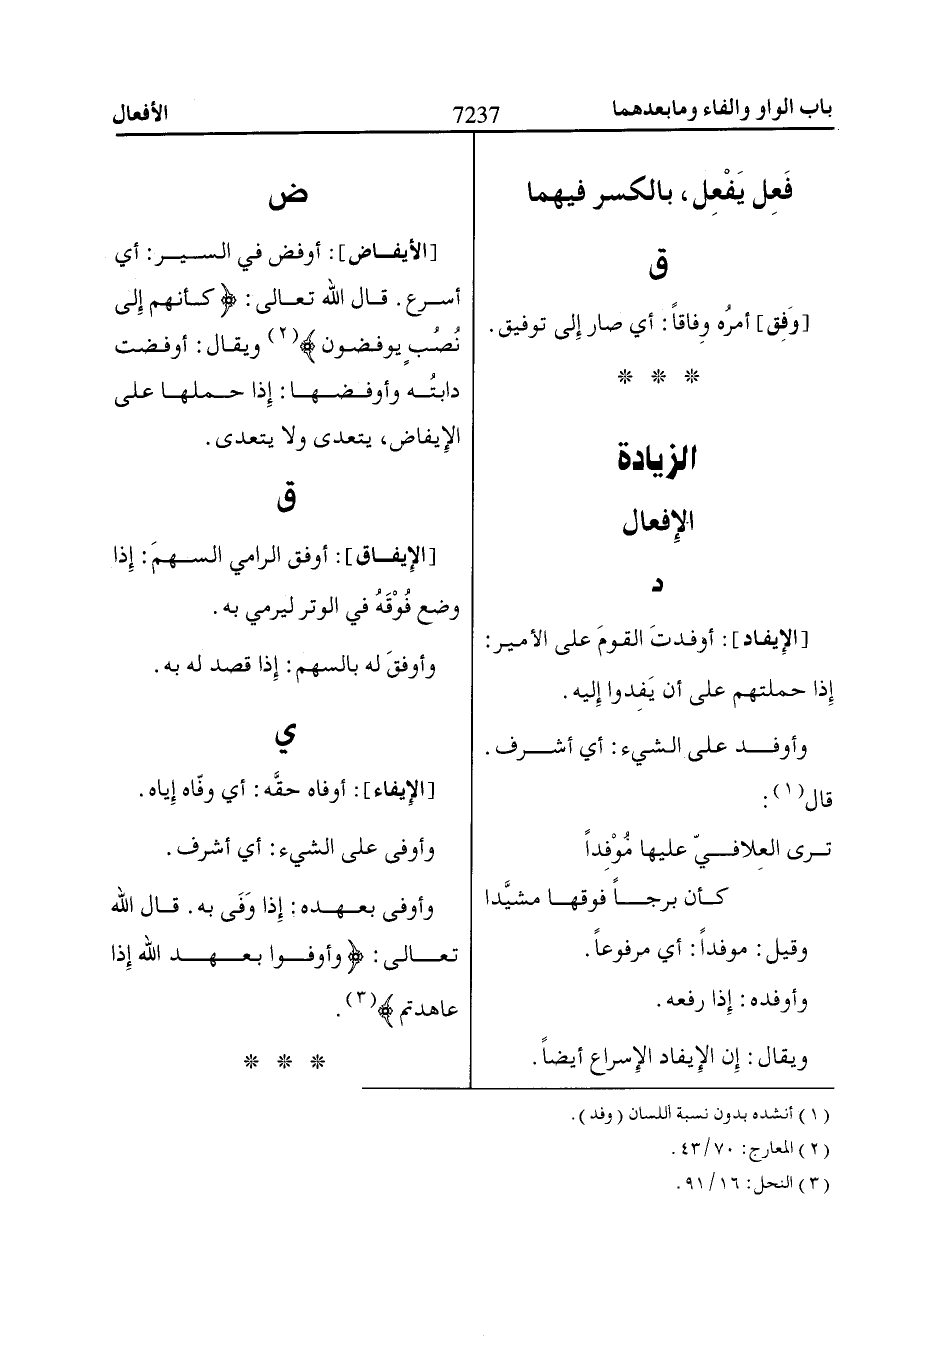 باب الواو والفاء ومابعدهما 7237 الأفعال
فَعِل يَفْعِل، بالكسر فيهما
ق
[وَفِق] أمرُه وِفاقاً: أي صار إلى توفيق.
* * *
الزيادة
الإفعال
د
[الإيفاد]: أوفدتَ القومَ على الأمير:
إذا حملتهم على أن يَفِدوا إليه.
وأوفد على الشيء: أي أشرف.
قال(١):
ترى العلافيّ عليها مُوْفِداً
كأن برجاً فوقها مشيَّدا
وقيل: موفداً: أي مرفوعاً.
وأوفده: إذا رفعه.
ويقال: إن الإيفاد الإسراع أيضاً.
ض
[الأيفاض]: أوفض في السير: أي
أسرع. قال الله تعالى: ﴿كأنهم إلى
نُصُبٍ يوفضون﴾(٢) ويقال: أوفضت
دابتُه وأوفضها: إذا حملها على
الإيفاض، يتعدى ولا يتعدى.
ق
[الإيفاق]: أوفق الرامي السهمَ: إذا
وضع فُوْقَهُ في الوتر ليرمي به.
وأوفقَ له بالسهم: إذا قصد له به.
ي
[الإيفاء]: أوفاه حقَّه: أي وفّاه إياه.
وأوفى على الشيء: أي أشرف.
وأوفى بعهده: إذا وَفَى به. قال الله
تعالى: ﴿وأوفوا بعهد الله إذا
عاهدتم﴾(٣).
* * *
(١) أنشده بدون نسبة أللسان (وفد).
(٢) المعارج: ٤٣/٧٠.
(٣) النحل: ٩١/١٦.